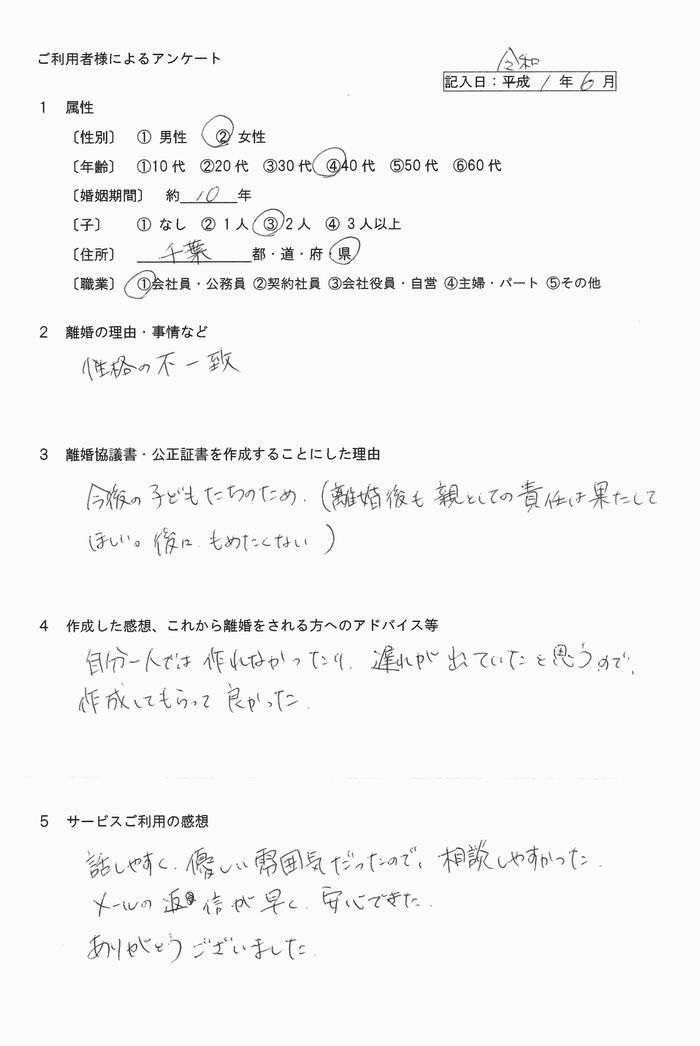 ご利用者様によるアンケート
令和
記入日：平成 1 年 6 月
1 属性
〔性別〕 ① 男性 ② 女性
〔年齢〕 ①10代 ②20代 ③30代 ④40代 ⑤50代 ⑥60代
〔婚姻期間〕 約 10 年
〔子〕 ① なし ② 1人 ③ 2人 ④ 3人以上
〔住所〕 千葉 都・道・府・県
〔職業〕 ①会社員・公務員 ②契約社員 ③会社役員・自営 ④主婦・パート ⑤その他
2 離婚の理由・事情など
性格の不一致
3 離婚協議書・公正証書を作成することにした理由
今後の子どもたちのため.(離婚後も親としての責任は果たして
ほしい。後に、もめたくない)
4 作成した感想、これから離婚をされる方へのアドバイス等
自分一人では作れなかったり、遅れが出ていたと思うので、
作成してもらって良かった.
5 サービスご利用の感想
話しやすく、優しい雰囲気だったので、相談しやすかった.
メールの返信が早く、安心できた.
ありがとうございました.